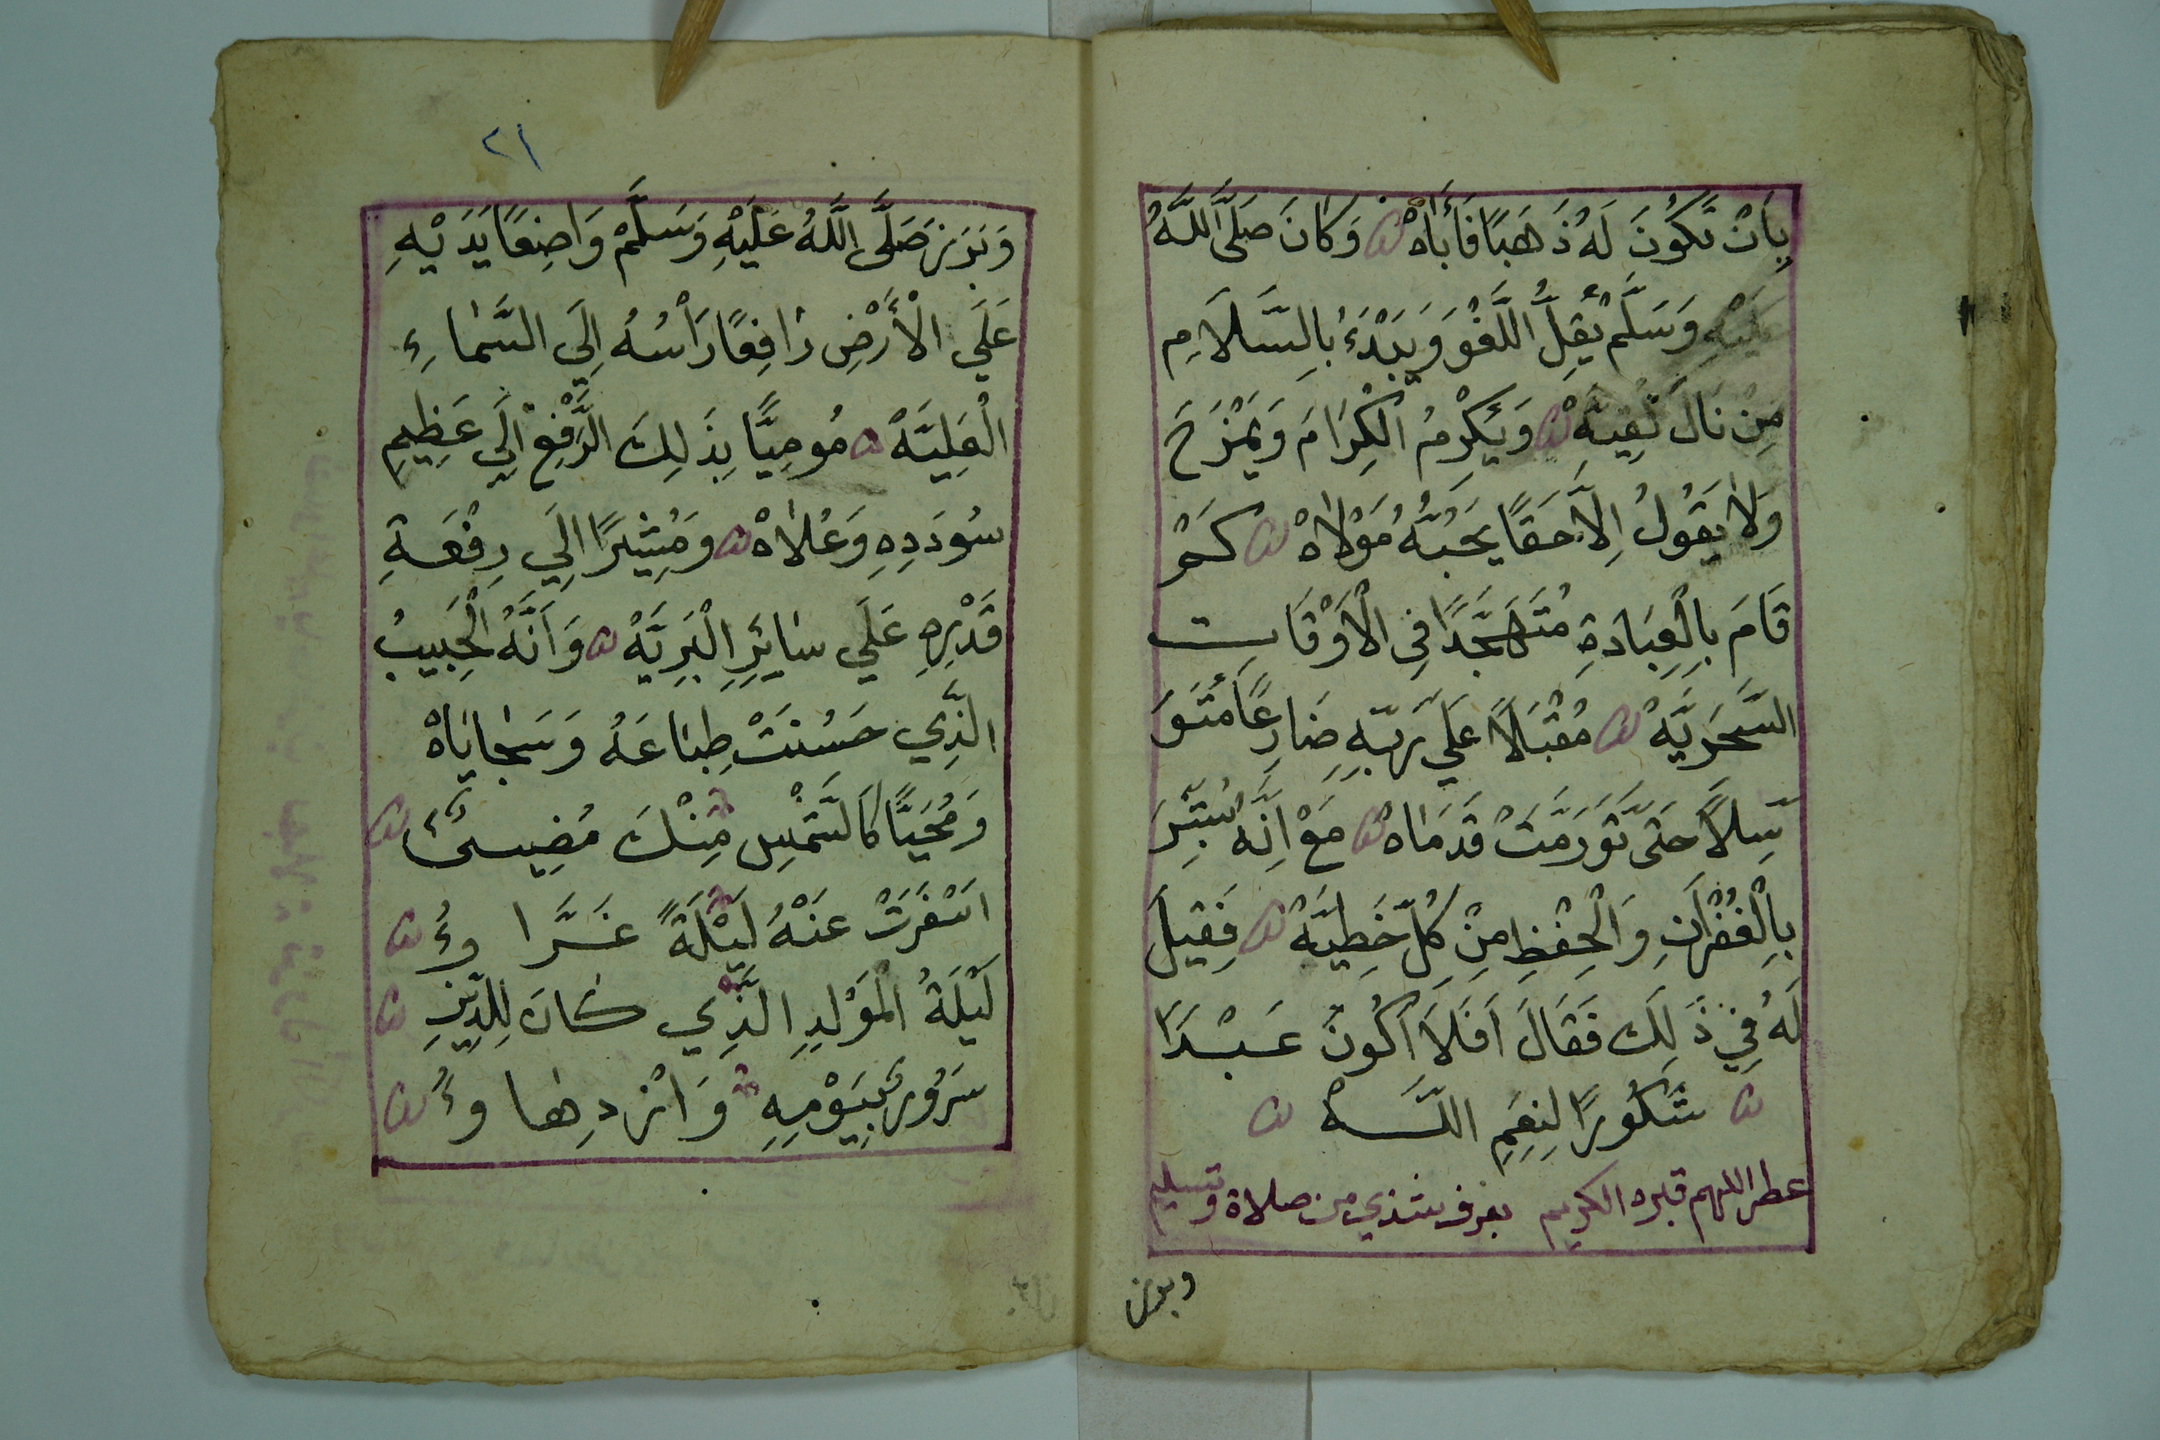 بِاَنْ تَكُونَ لَهُ ذَهَبًا فَأَبَاهْ وَكَانَ صَلَّى اللَّهُ
عَلَيْهِ وَسَلَّمْ يُقِلُّ اللَّغْوَ وَيَبْدَءُ بِالسَّلَامِ
مِنْ نَالَ لُقِيَهْ وَيُكْرِمُ الْكِرَامَ وَيَمْزَحَ
وَلَا يَقُولُ اِلَّا حَقًا يُحِبُّهُ مَوْلَاهْ كَمْ
قَامَ بِالْعِبَادَةِ مُتَهَجَّدًا فِي الْاَوْقَاتِ
السَّحَرِيَّهْ مُقْبَلًا عَلَي رَبِّهِ ضَارِعًا مُتَوَ
سِّلًا حَتَى تَّوَرَمَّتْ قَدَمَاهْ مَعْ اِنَّهُ بُشِّرَ
بِالْغُفْرَانِ وَالْحِفْظِ مِنْ كُلِّ خَطِيَّهْ فَقِيلَ
لَهُ فِي ذَلِكَ فَقَالَ اَفَلَا اَكُونُ عَبْدًا
شَكُورًا لِنِعَمِ اللَّهْ
عطر اللهم قبره الكريم بعرف شذي من صلاة وتسليم
وبرز
٢١
وَبَرَزَ صَلَّى اللَّهُ عَلَيْهِ وَسَلَّمْ وَاضِعًا يَدَيْهِ
عَلَي الْأَرْضِ رَافِعًا رَأْسُهُ اِلَي السَّمَاءِ
الْعَلِيَّهْ مُومِيًّا بِذَلِكَ الرَّفْعِ اِلَي عَظِيمِ
سُودَدِهِ وَعُلَاهْ وَمُشِيرًا اِلَي رِفْعَةِ
قَدْرِهِ عَلَي سَايِرِ الْبَرِيَّهْ وَاَنَّهُ الْحَبِيبُ
الَّذِي حَسُنَتْ طِبَاعَهُ وَسَجَايَاهْ
وَمُحَيًّا كَالشَّمْسِ مِنْكَ مُضِيىءٌ
اَسْفَرَتْ عَنْهُ لَيْلَةً غَرَّاوءُ
لَيْلَةُ الْمَوْلِدِ الَّذِي كَانَ لِلدِّينِ
سَرُورٌ بِيَوْمِهِ وَازْدِهَاوءُ